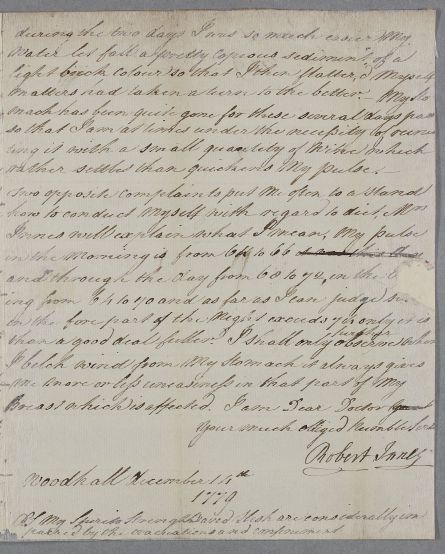 during the two days I was so much easier My
Water let fall a pretty copious sediment of a
light brick colour so that I then flatter'd Myself
matters had taken a turn to the better. My Sto
mach has been quite gone for these several days past
so that I am at times under the necessity of rous
ing it with a small quantity of Wine which
rather settles than quickens My pulse.
Two opposite complaints put Me often to a stand
how to conduct Myself with regard to diet, Mrs
Innes will explain what I mean, My pulse
in the Morning is from 64 to 66
and through the day from 68 to 72, in the
ing from 64 to 70 and as far as I can judge
in the fore part of the Night exceeds 70 only it is
than a good deal fuller. I shall only further observe when
I belch wind from My Stomach it always gives
Me more or less uneasiness in that part of My
Breast which is affected. I am Dear Doctor
Your much obliged humble Serv
Robert Innes
Woodhall December 14th
1770
PS My Spirits Strength and flesh are considerably im
paired by the evacuations and confinement